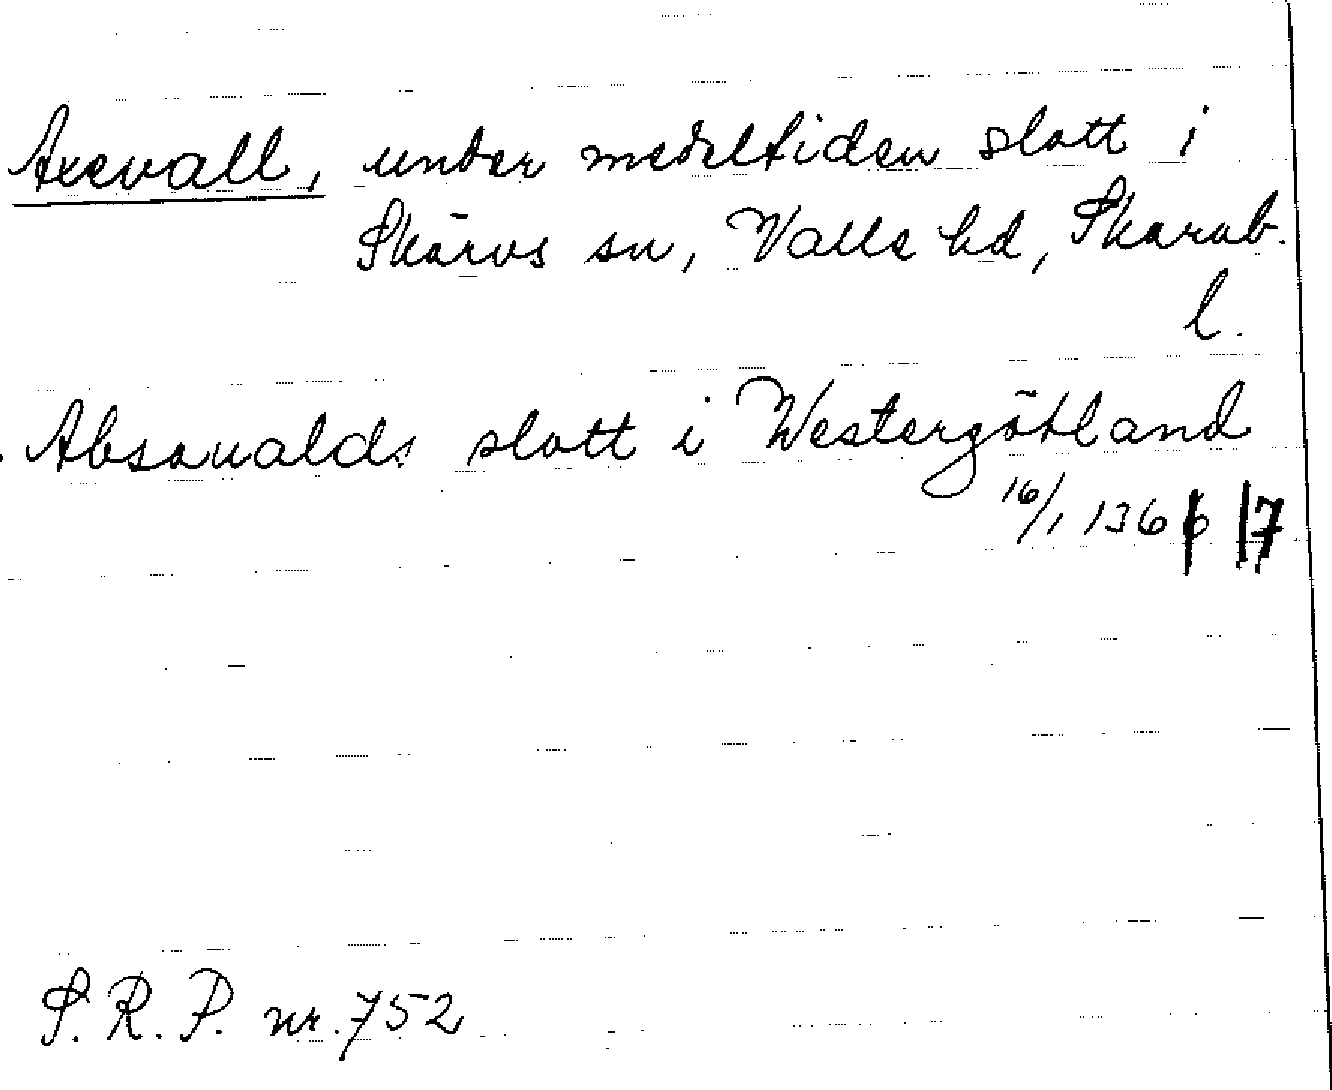 Axevall, under medeltiden slott i
Skärvs sn, Valle hd, Skarab.
l.
Absawalds slott i Westergötland
16/1 1366 7
S. R. P. nr. 752